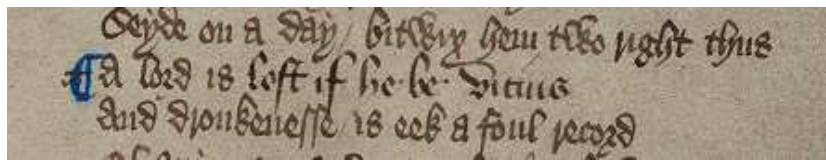 Seyde on a day / bitwix hem two right thus
¶ A lord is lost if he be vicius
And dronkenesse / is eek a foul record